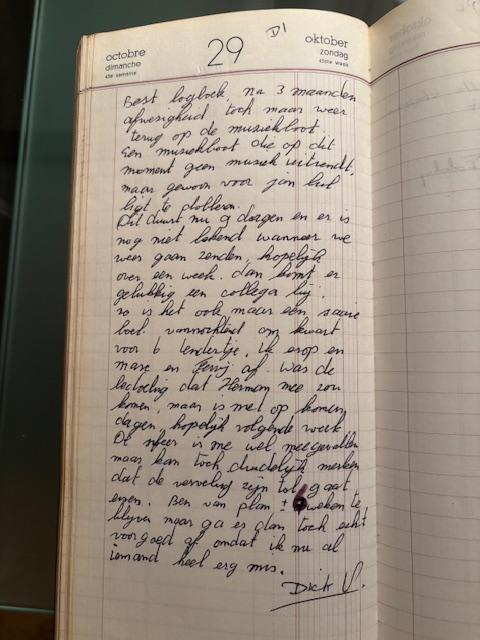 octobre
dimanche
43e semaine
29
DI
oktober
zondag
43ste week
Best logboek, na 3 maanden
afwezigheid toch maar weer
terug op de muziekboot.
Een muziekboot die op dit
moment geen muziek uitzendt,
maar gewoon voor jan lul
ligt te dobberen.
Dit duurt nu 9 dagen en er is
nog niet bekend wanneer we
weer gaan zenden, hopelijk
over een week. dan komt er
gelukkig een collega bij.
zo is het ook maar een saaie
boel. vannochtend om kwart
voor 6 tendertje, ik erop en
marc en Ferry af. Was de
bedoeling dat Herman mee zou
komen, maar is niet op komen
dagen, hopelijk volgende week
De sfeer is me wel meegevallen
maar kan toch duidelijk merken
dat de verveling zijn tol gaat
eisen. Ben van plan ± 6 weken te
blijven maar ga er dan toch echt
voorgoed af omdat ik nu al
iemand heel erg mis.
Dick V.